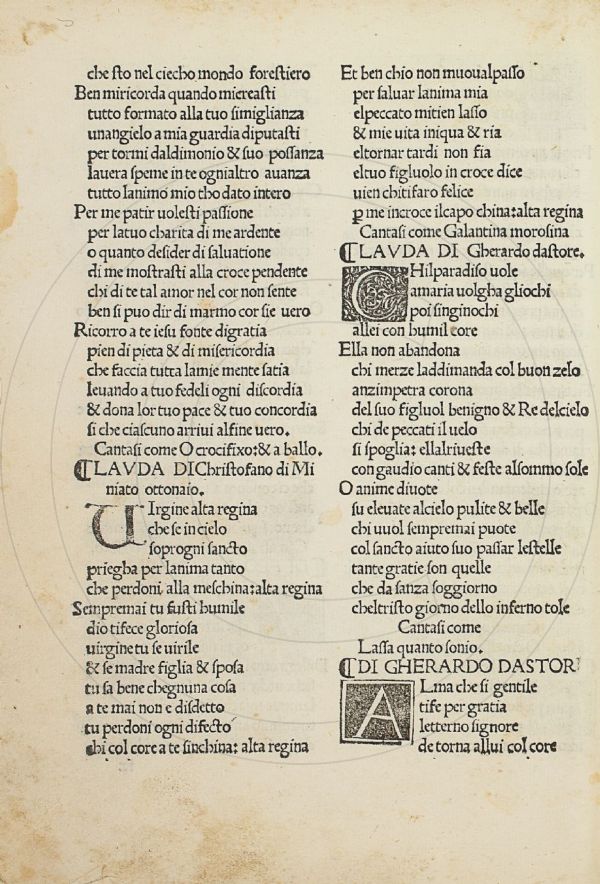 che sto nel ciecho mondo forestiero
Ben miricorda quando micreasti
tutto formato alla tuo simiglianza
unangielo a mia guardia diputasti
per tormi daldimonio & suo possanza
lauera speme in te ognialtro auanza
tutto lanimo mio tho dato intero
Per me patir uolesti passione
per latuo charita di me ardente
o quanto desider di saluatione
di me mostrasti alla croce pendente
chi di te tal amor nel cor non sente
ben si puo dir di marmo cor sie uero
Ricorro a te iesu fonte digratia
pien di pieta & di misericordia
che faccia tutta lamie mente satia
leuando a tuo fedeli ogni discordia
& dona lor tuo pace & tuo concordia
si che ciascuno arriui alfine uero.
Cantasi come O crocifixo: & a ballo.
⸿LAVDA DI Christofano di Mi
niato ottonaio.
UIrgine alta regina
che se in cielo
soprogni sancto
priegha per lanima tanto
che perdoni alla meschina: alta regina
Sempremai tu fusti humile
dio tifece gloriosa
uirgine tu se uirile
& se madre figlia & sposa
tu sa bene chegnuna cosa
a te mai non e disdetto
tu perdoni ogni difecto
chi col core a te sinchina: alta regina
Et ben chio non muoualpasso
per saluar lanima mia
elpeccato mitien lasso
& mie uita iniqua & ria
eltornar tardi non fia
eltuo figluolo in croce dice
uien chitifaro felice
ꝑ me incroce ilcapo china: alta regina
Cantasi come Galantina morosina
⸿LAVDA DI Gherardo dastore.
CHilparadiso uole
amaria uolgha gliochi
poi singinochi
allei con humil core
Ella non abandona
chi merze laddimanda col buon zelo
anzimpetra corona
del suo figluol benigno & Re delcielo
chi de peccati il uelo
si spoglia: ellalriueste
con gaudio canti & feste alsommo sole
O anime diuote
su eleuate alcielo pulite & belle
chi uuol sempremai puote
col sancto aiuto suo passar lestelle
tante gratie son quelle
che da sanza soggiorno
cheltristo giorno dello inferno tole
Cantasi come
Lassa quanto sonio.
⸿DI GHERARDO DASTOR
ALma che si gentile
tife per gratia
letterno signore
de torna allui col core